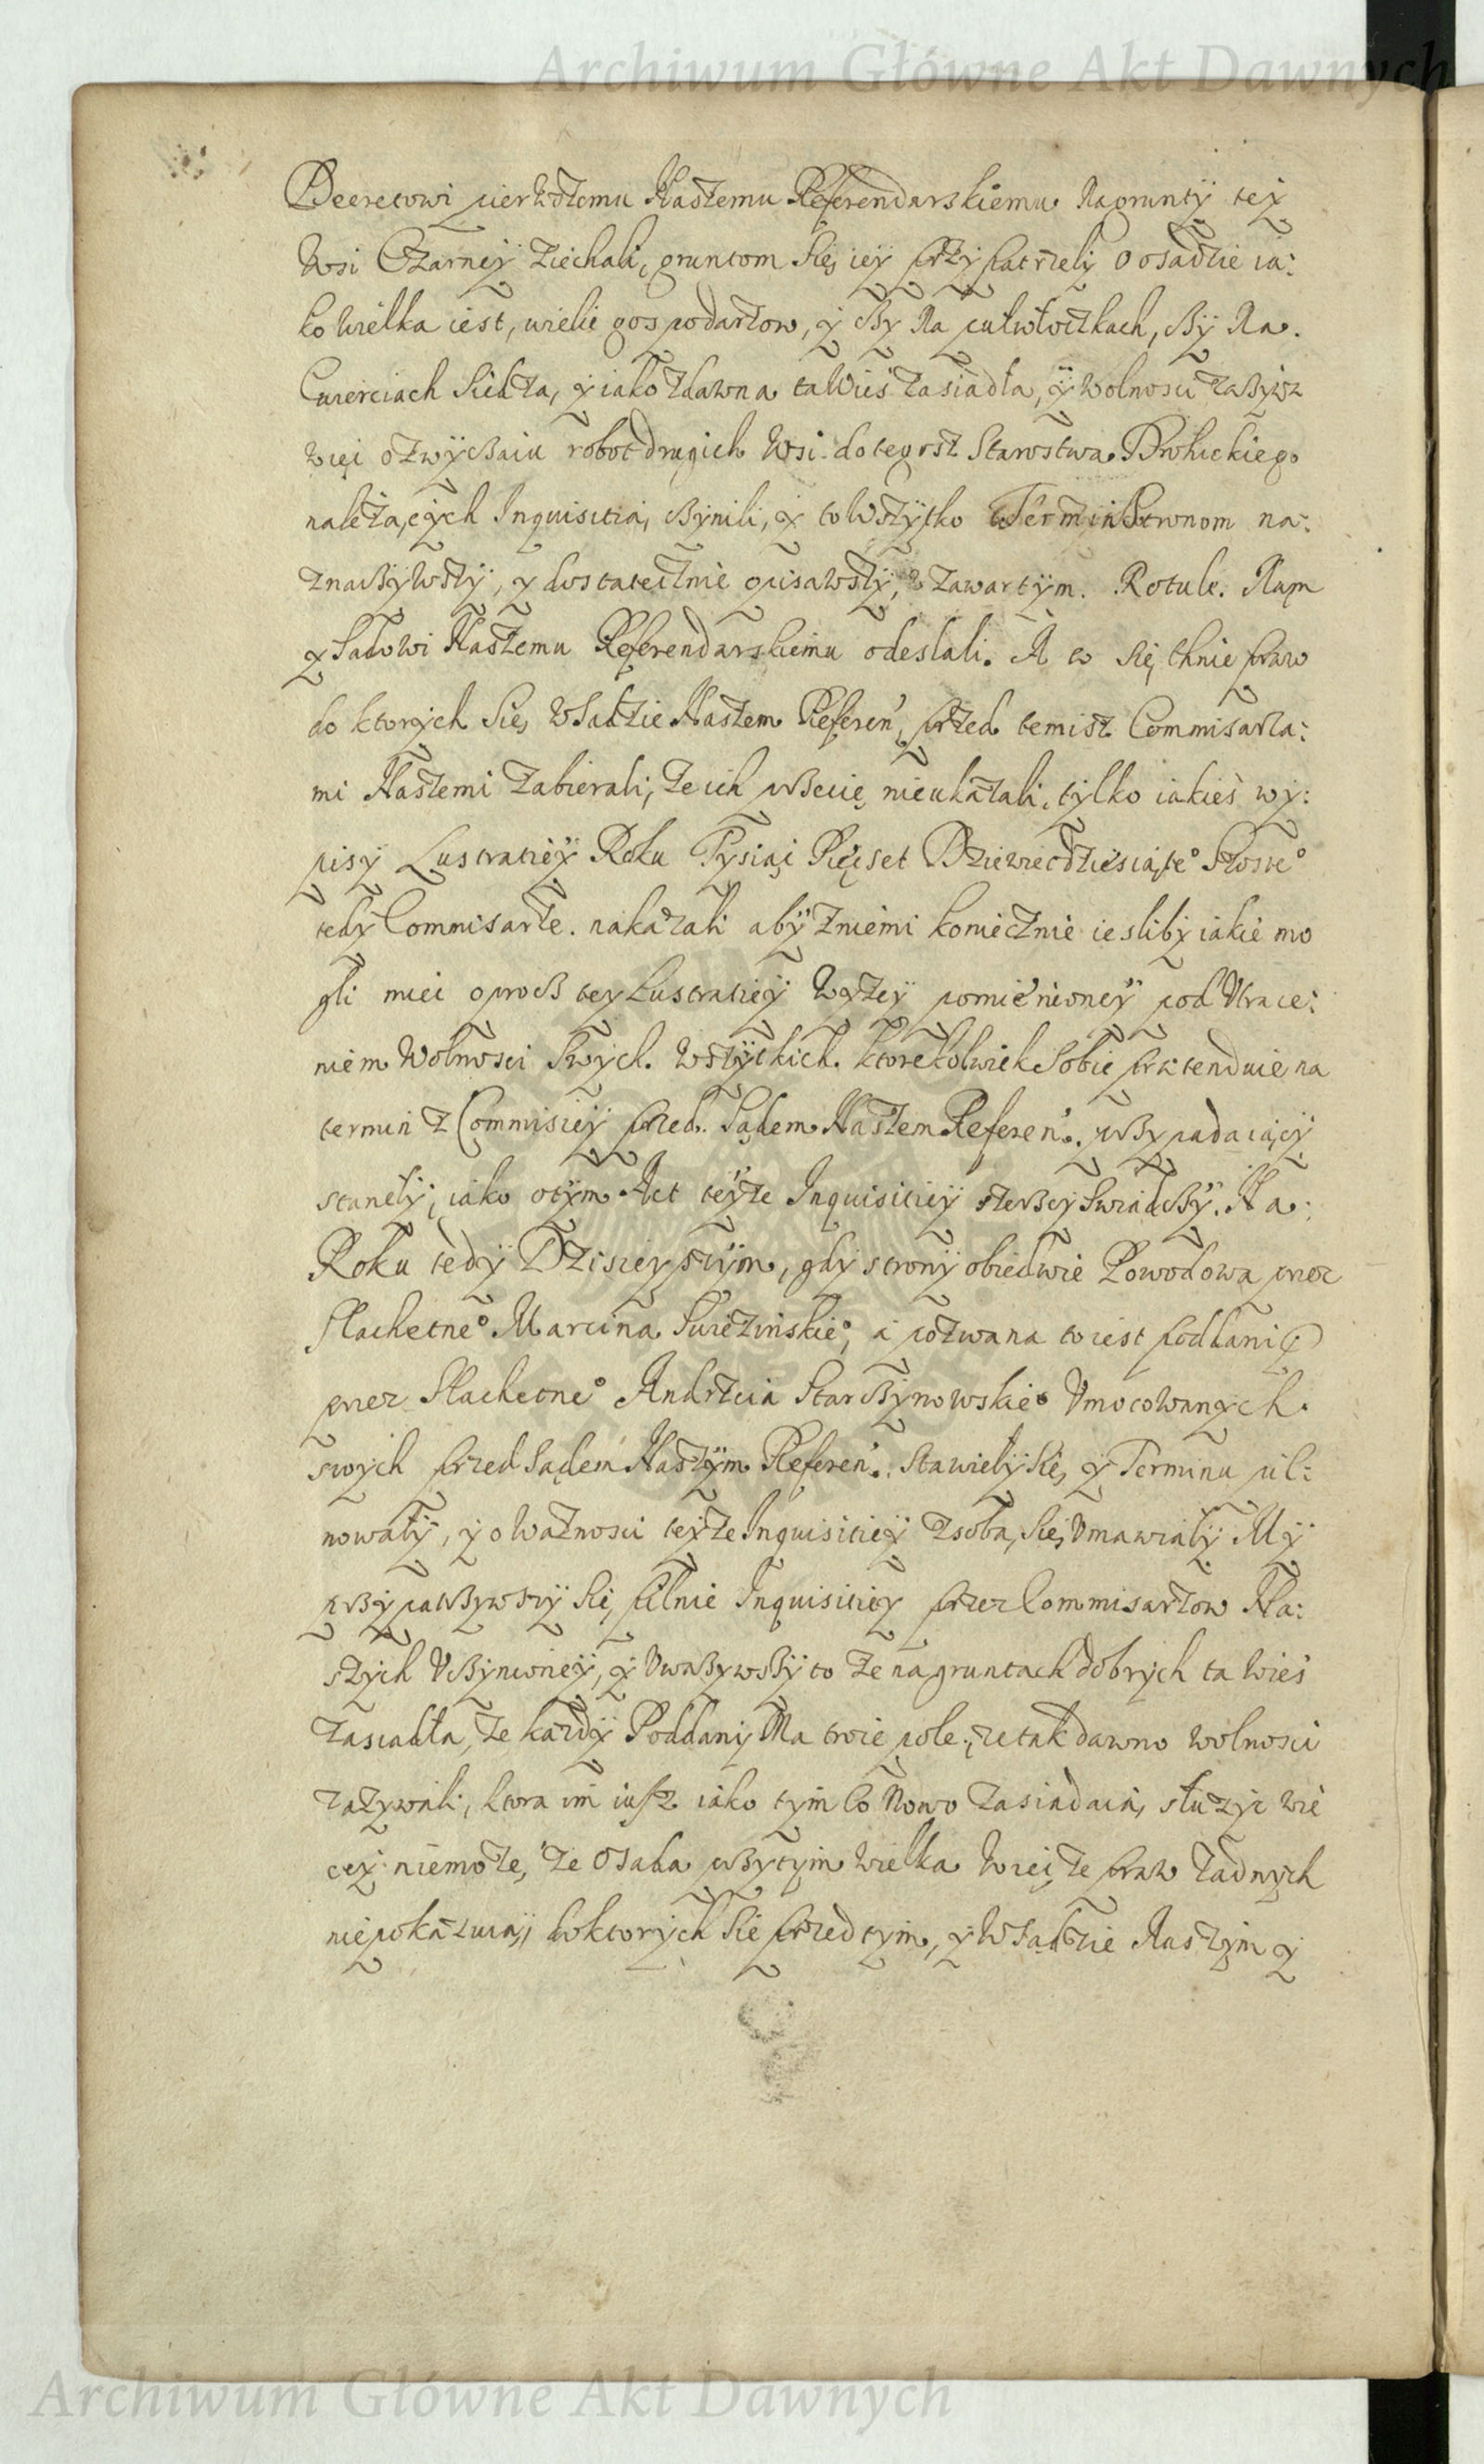 Archiwum Główne Akt Dawnych
Decretowi pierwszemu Naszemu Referendarskiemu Nagrunty tey
Wsi Czarney ziechali, gruntom się iey przypatrzeli o osadzie ia:
ko wielka iest, wiele gospodarzow, y czy Na pułwłoczkach, czy Na
Cwerciach siedzą, y iako zdawna ta Wieś zasiadła, y wolnosci zażyw
więi o zwyczaiu robot drugich Wsi do tegosz Starostwa
należących Inquisitią czynili, y to wszytko Termin Stronom na:
znaczywszy, y dostatecznie opisawszy, w zawartym Rotule. Nam
y Sądowi Naszemu Referendarskiemu odeslali. A to się tknie praw
do ktorych się w Sądzie Naszem Referen, przed temisz Commisarza:
mi Naszemi zabierali, że ich przecie nieukazali, tylko iakieś wy:
pisy Lustratiey Roku Tysiąc Pięcset Dziewiecdziesiąte° Szoste°
tedy Commisarze nakazali aby zniemi koniecznie iesliby iakie mo
gli miec oprocz tey Lustratiey wyżey pomienioney pod Utrace:
niem Wolnosci Swych Wszytkich ktorekolwiek Sobie praetenduie na
termin z Commisiey przed Sądem Naszem Referen. przypadaiący
staneły, iako o tym Act teyże Inquisitiey szerzey swiadczy. Na
Roku tedy Dzisieyszym, gdy strony obiedwie Powodowa przez
Slachetne° Marcina Swiezinskie°, a pozwana to iest poddani
przez Slachetne° Andrzeia Starczynowskie° Umocowanych
swych przed Sądem Naszym Referen. Stawieły się, y Terminu pil:
nowały, y o ważnosci teyże Inquisitiey zsobą się Umawiały My
przypatrzywszy się pilnie Inquisitiey przez Commisarzow Na:
szych Uczynioney, y Uważywszy to że na gruntach dobrych ta Wieś
zasiadła, że każdy Poddany Ma troie pole, że tak dawno wolnosci
zażywali, ktora im iusz iako tym co Nowo zasiadaią służyc wie
cey niemoże, że Osada przytym wielka Wiec że praw żadnych
niepokazuią do ktorych się przed tym, y w Sądzie Naszym y
Archiwum Główne Akt Dawnych